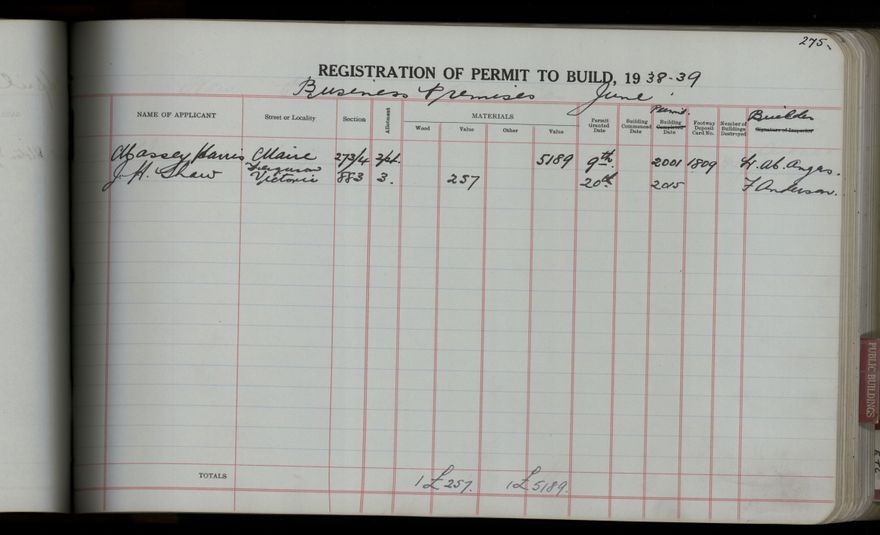 275.
REGISTRATION OF PERMIT TO BUILD, 1938-39
Business Premises June
NAME OF APPLICANT Street or Locality Section Allotment MATERIALS Wood Value Other Value Permit Granted Date Building Commenced Date Permit Building Completed Date Footway Deposit Card No. Number of Buildings Destroyed Builder Signature of Inspector
Massey Harris Maire 273/4 5189 9th 2001 1809 Angus.
Ferguson
J. H. Shaw Victoria 883 3. 257 20th 2015 F Anderson.
TOTALS 1 £257. 1 £5189.
PUBLIC BUILDINGS